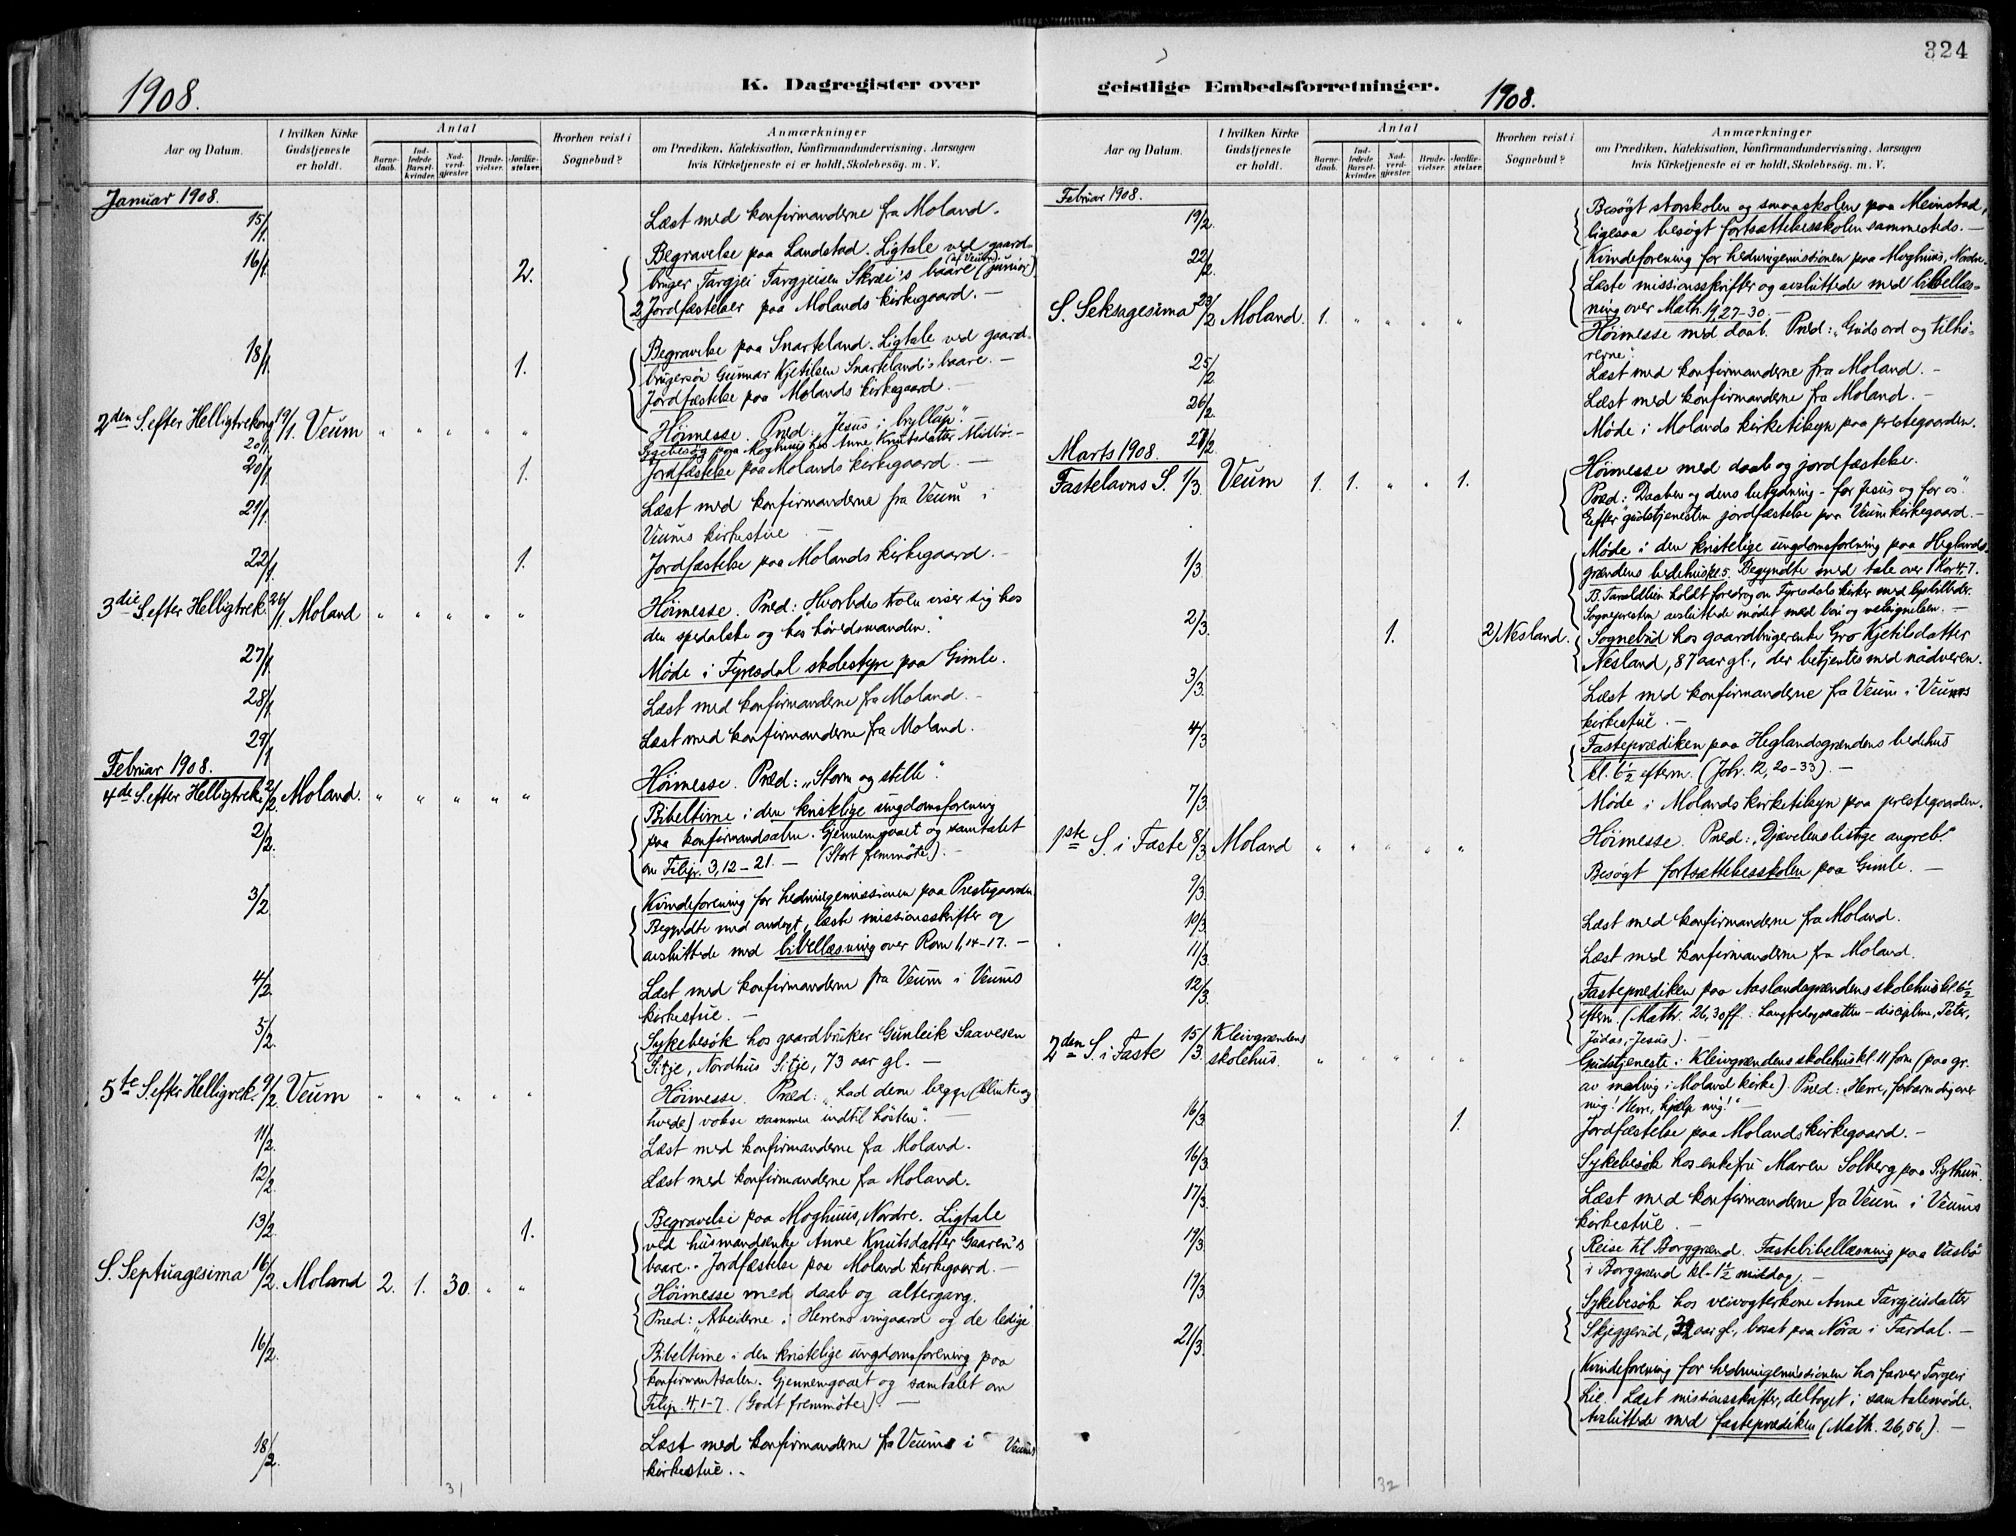 324
1908.
K. Dagregister over
geistlige Embedsforretninger.
1908.
Aar og Datum.
I hvilken Kirke Gudstjeneste er holdt.
Antal
Barnedaab.
Indledede Barselkvinder.
Nadverdgjæster.
Brudevielser.
Jordfæstelser.
Hvorhen reist i Sognebud?
Anmærkninger
om Prædiken, Katekisation, Konfirmandundervisning, Aarsagen
hvis Kirketjeneste ei er holdt, Skolebesøg. m. V.
Januar 1908.
15/1. Læst med konfirmanderne fra Moland.
16/1. 2. Begravelse paa Landstad. Ligtale ved gaard-
(af Veum)
bruger Targjei Targjeisen Skræi's baare (junior)
2 Jordfæstelser paa Molands kirkegaard. —
18/1. 1. Begravelse paa Snarteland. Ligtale ved gaard-
brugersøn Gunnar Kjetilsen Snarteland's baare. —
Jordfæstelse paa Molands kirkegaard. —
2den S. efter Helligtrekong. 19/1. Veum " " " " " Høimesse. Præd: "Jesus i bryllup".
20/1. Sygebesøg paa Moghuus hos Anne Knutsdatter Midbø. —
20/1. 1. Jordfæstelse paa Molands kirkegaard. —
21/1. Læst med konfirmanderne fra Veum i
Veums kirkestue —
22/1. 1. Jordfæstelse paa Molands kirkegaard. —
3die S. efter Helligtrek. 26/1. Moland " " " " " Høimesse. Præd: Hvorledes troen viser sig hos
den spedalske og hos høvedsmanden."
27/1. Møde i Fyresdal skolestyre paa Gimle.
28/1. Læst med konfirmanderne fra Moland. —
29/1 Læst med konfirmanderne fra Moland.
Februar 1908.
4de S. efter Helligtrek. 2/2. Moland. " " " " " Høimesse. Præd: "Storm og stille".
2/2. Bibeltime i den kristelige ungdomsforening
paa konfirmandsalen. Gjennemgaaet og samtalet
om Filip. 3, 12–21. — (Stort fremmøte). —
3/2 Kvindeforening for hedningemissionen paa Prestegaarden
Begyndte med andagt, læste missionsskrifter og
avsluttede med bibellæsning over Rom 1, 14–17. —
4/2. Læst med konfirmanderne fra Veum i Veums
kirkestue. —
5/2. Sykebesøk hos gaardbruker Gunleik Saavesen
Sitje, Nordhus Sitje, 73 aar gl. —
5te S. efter Helligtrek. 9/2. Veum " " " " " Høimesse. Præd: "Lad dem begge (klinte og
hvede) vokse sammen indtil høsten". —
11/2. Læst med konfirmanderne fra Moland.
12/2. Læst med konfirmanderne fra Moland.
13/2. 1. Begravelse paa Moghuus, Nordre. Ligtale
ved husmandsenke Anne Knutsdatter Gaaren's
baare. Jordfæstelse paa Moland kirkegaard. —
S. Septuagesima 16/2. Moland 2. 1. 30. " " Høimesse med daab og altergang.
Præd: "Arbeiderne i Herrens vingaard og de ledige"
16/2. Bibeltime i den kristelige ungdomsforening paa
konfirmantsalen. Gjennemgaaet og samtalet om
Filip. 4, 1–7. (Godt fremmøte). —
18/2. Læst med konfirmanderne fra Veum i Veums
kirkestue. —
31
Aar og Datum.
I hvilken Kirke Gudstjeneste er holdt.
Antal
Barnedaab.
Indledede Barselkvinder.
Nadverdgjæster.
Brudevielser.
Jordfæstelser.
Hvorhen reist i Sognebud?
Anmærkninger
om Prædiken, Katekisation, Konfirmandundervisning, Aarsagen
hvis Kirketjeneste ei er holdt, Skolebesøg. m. V.
Februar 1908.
19/2. Besøgt storskolen og smaaskolen paa Meinstad,
ligesaa besøgt fortsættelsesskolen sammesteds. —
22/2. Kvindeforening for hedningemissionen paa Moghuus, Nordre.
Læste missionsskrifter og avsluttede med bibellæs-
ning over Math. 9, 27–30. —
S. Seksagesima 23/2. Moland. 1. " " " " Høimesse med daab. Præd: "Guds ord og tilhø-
rerne".
25/2 Læst med konfirmanderne fra Moland. —
26/2. Læst med konfirmanderne fra Moland. —
27/2. Møde i Molands kirketilsyn paa prestegaarden.
Marts 1908.
Fastelavns S. 1/3. Veum 1. 1. " " 1. Høimesse med daab og jordfæstelse.
Præd: Daaben og dens betydning – for Jesus og for os".
Efter gudstjenesten jordfæstelse paa Veum kirkegaard. —
1/3. Møde i den kristelige ungdomsforening paa Heglands-
grændens bedehus kl. 5. Begyndte med tale over 1 Kor 4, 7.
B. Taraldlien holdt foredrag om Fyresdals kirker med lysbilleder.
Sogneprесten avsluttede mødet med bøn og velsignelsen. —
2/3. 1. 2) Nesland. Sognebud hos gaardbrugerenke Gro Kjetilsdatter
Nesland, 87 aar gl., der betjentes med nadveren.
3/3. Læst med konfirmanderne fra Veum i Veums
kirkestue. —
4/3 Fasteprædiken paa Heglandsgrændens bedehus
kl. 6½ efterm. (Joh. 12, 20–33). —
7/3. Møde i Molands kirketilsyn paa prestegaarden.
1ste S. i Faste 8/3. Moland " " " " " Høimesse. Præd: "Djævelens listige angreb."
9/3. Besøgt fortsættelsesskolen paa Gimle. —
10/3. Læst med konfirmanderne fra Moland.
11/3. Læst med konfirmanderne fra Moland.
12/3. Fasteprædiken paa Aaslandsgrændens skolehus kl. 6½
efterm. (Math. 26, 30 ff. Langfredagsnatten – disciplene, Peter,
Judas, Jesus). —
2den S. i Faste 15/3. Kleivgrændens skolehus. " " " " " Gudstjeneste i Kleivgrændens skolehus kl. 11 form (paa gr.
av maling i Moland kirke). Præd: "Herre, forbarm dig over
mig! Herre, hjælp mig!" —
16/3. 1. Jordfæstelse paa Molands kirkegaard. —
16/3. Sykebesøk hos enkefru Maren Solberg paa Sigthun.
17/3. Læst med konfirmanderne fra Veum i Veums
kirkestue. —
19/3. Reise til Borggrænd. Fastebibellæsning paa Vasbø
i Borggrænd kl. 1½ middag. —
19/3. Sykebesøk hos veivogterkone Anne Targjeisdatter
Skjeggerud, 32 aar gl., bosat paa Nora i Fardal. —
21/3. Kvindeforening for hedningemissionen hos farver Torgeir
Lie. Læst missionsskrifter, deltaget i samtalemøde.
Avsluttede med fasteprædiken (Math. 26, 56). —
32